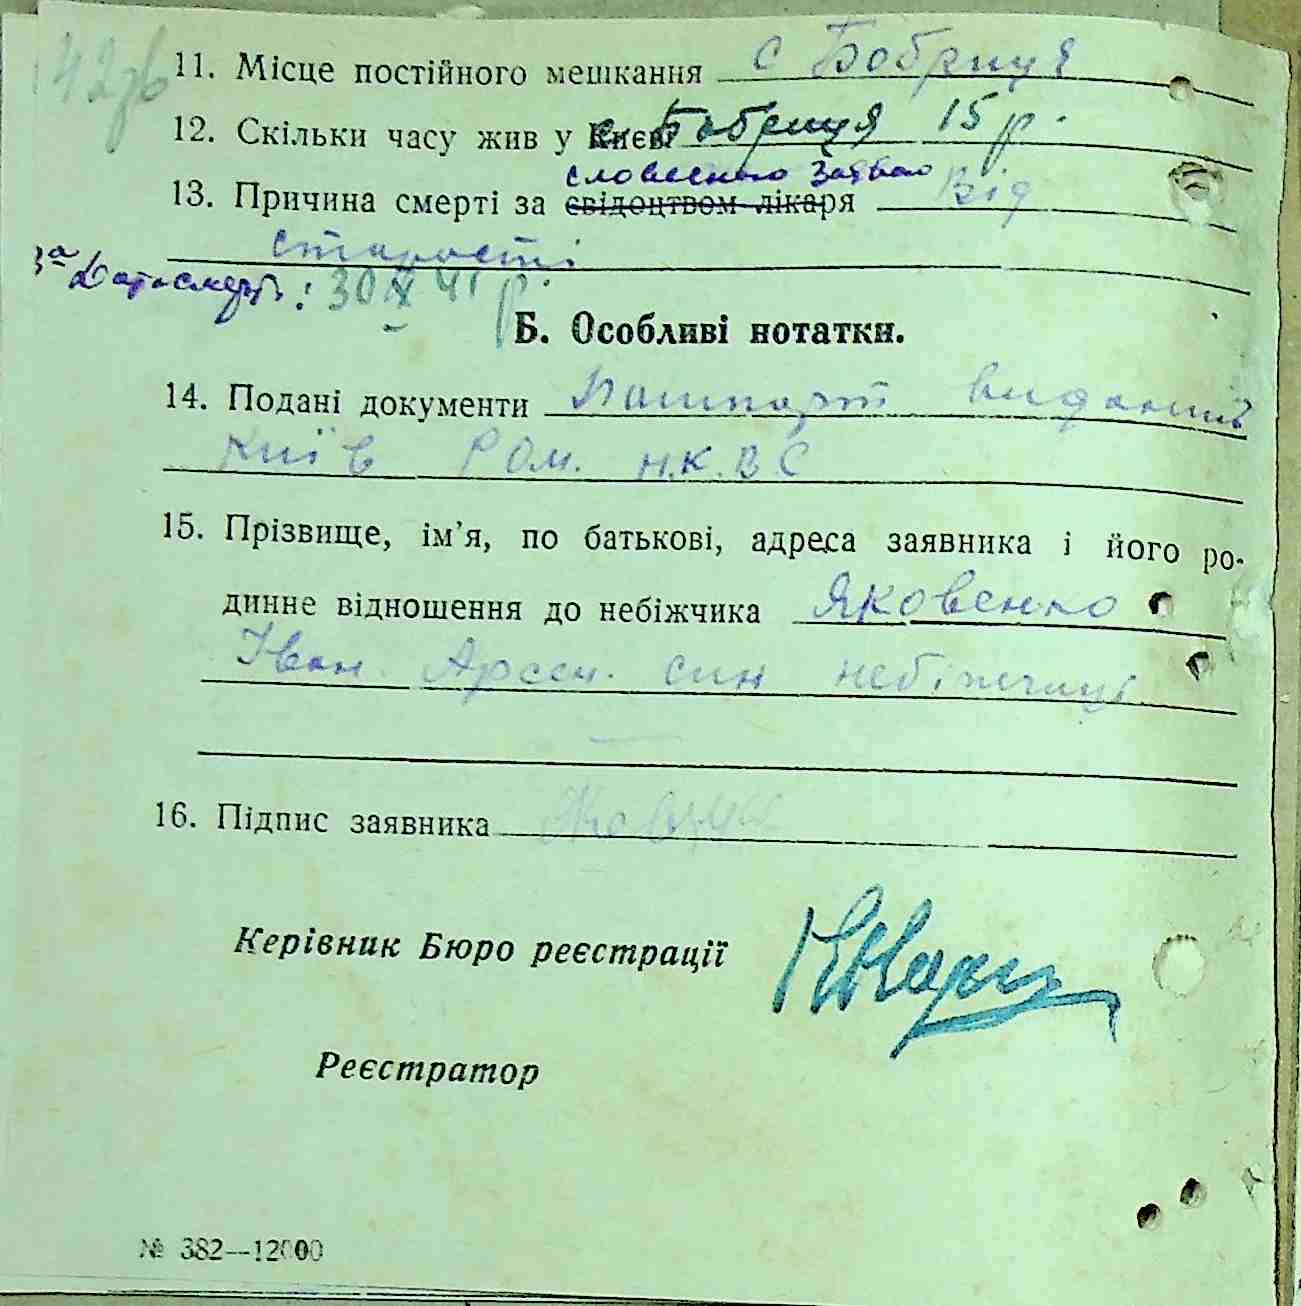 42зв
11. Місце постійного мешкання с Бобриця
12. Скільки часу жив у Києві с. Бобриця 15 р.
словесною заявою
13. Причина смерті за свідоцтвом лікаря Від
старості
за Дата смерті: 30 X 41 р.
Б. Особливі нотатки.
14. Подані документи Пашпорт виданий
Київ РОм. Н.К.В.С
15. Прізвище, ім'я, по батькові, адреса заявника і його ро-
динне відношення до небіжчика Яковенко
Іван. Арсен. син небіжчиці
16. Підпис заявника
Керівник Бюро реєстрації
Реєстратор
№ 382—12000